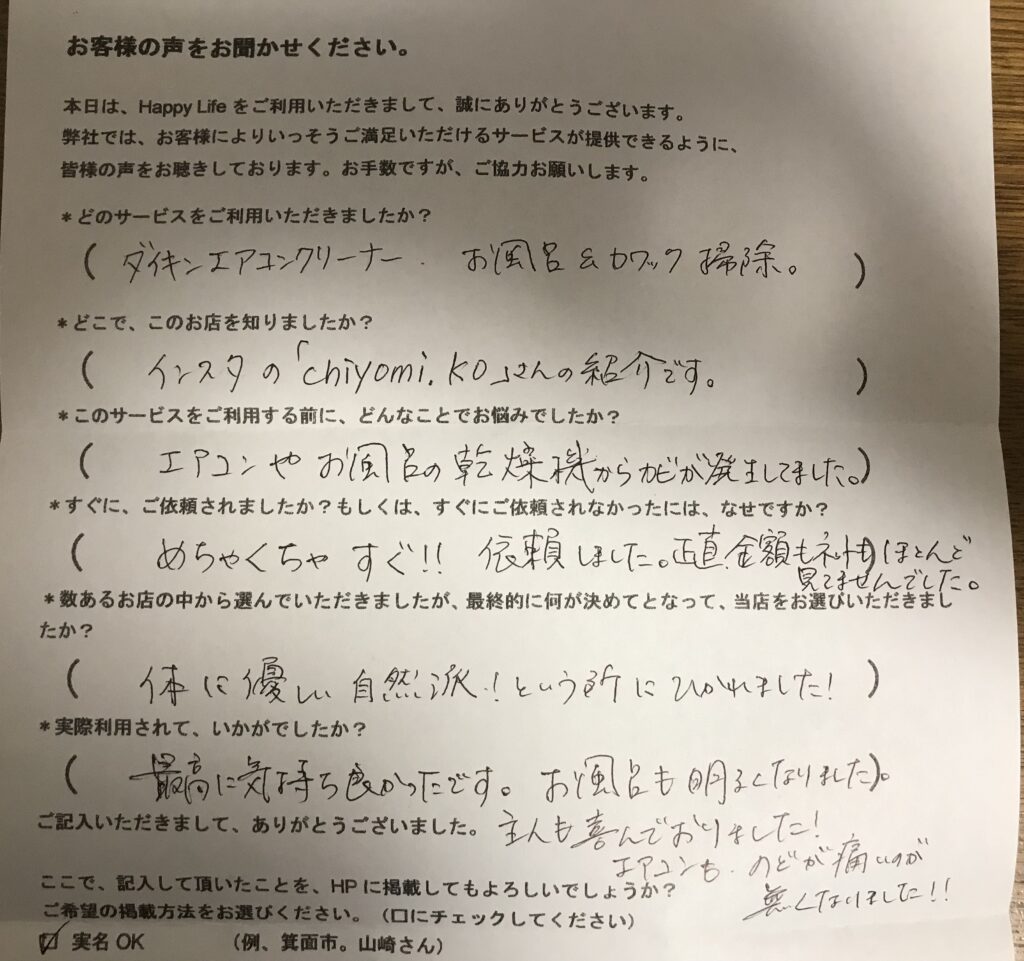 お客様の声をお聞かせください。
本日は、Happy Life をご利用いただきまして、誠にありがとうございます。
弊社では、お客様によりいっそうご満足いただけるサービスが提供できるように、
皆様の声をお聴きしております。お手数ですが、ご協力お願いします。
＊どのサービスをご利用いただきましたか？
( ダイキンエアコンクリーナー. お風呂＆カワック掃除。 )
＊どこで、このお店を知りましたか？
( インスタの「chiyomi.ko」さんの紹介です。 )
＊このサービスをご利用する前に、どんなことでお悩みでしたか？
( エアコンやお風呂の乾燥機からカビが発生してました。)
＊すぐに、ご依頼されましたか？もしくは、すぐにご依頼されなかったには、なぜですか？
( めちゃくちゃすぐ!! 依頼しました。正直金額もネットも)ほとんど
見てませんでした。
＊数あるお店の中から選んでいただきましたが、最終的に何が決めてとなって、当店をお選びいただきまし
たか？
( 体に優しい自然派！という所にひかれました！ )
＊実際利用されて、いかがでしたか？
( 最高に気持ち良かったです。お風呂も明るくなりました)。
ご記入いただきまして、ありがとうございました。主人も喜んでおりました！
エアコンも.のどが痛いのが
無くなりました!!
ここで、記入して頂いたことを、HPに掲載してもよろしいでしょうか？
ご希望の掲載方法をお選びください。（口にチェックしてください）
☑ 実名 OK （例、箕面市。山崎さん）